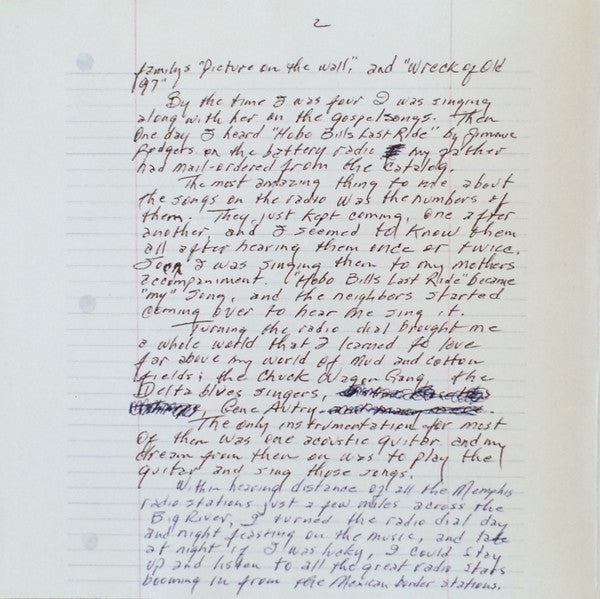 2
familys "Picture on the wall", and "Wreck of Old
97"
By the time I was four I was singing
along with her on the gospel songs. Then
One day I heard "Hobo Bills Last Ride" by Jimmie
Rodgers on the battery radio my father
had mail-ordered from the catalog.
The most amazing thing to me about
the songs on the radio was the numbers of
them. They just kept coming, one after
another, and I seemed to know them
all after hearing them once or twice.
Soon I was singing them to my mothers
accompaniment. "Hobo Bills Last Ride" became
"my" song, and the neighbors started
coming over to hear me sing it.
Turning the radio dial brought me
a whole world that I learned to love
far above my world of mud and cotton
fields; the Chuck Wagon Gang, the
Delta blues singers,
Gene Autry and many more.
The only instrumentation for most
of them was one acoustic guitar and my
dream from then on was to play the
guitar and sing those songs.
Within hearing distance of all the Memphis
radio stations just a few miles across the
Big River, I turned the radio dial day
and night feasting on the music, and late
at night if I was lucky, I could stay
up and listen to all the great radio stars
booming in from the Mexican border stations.